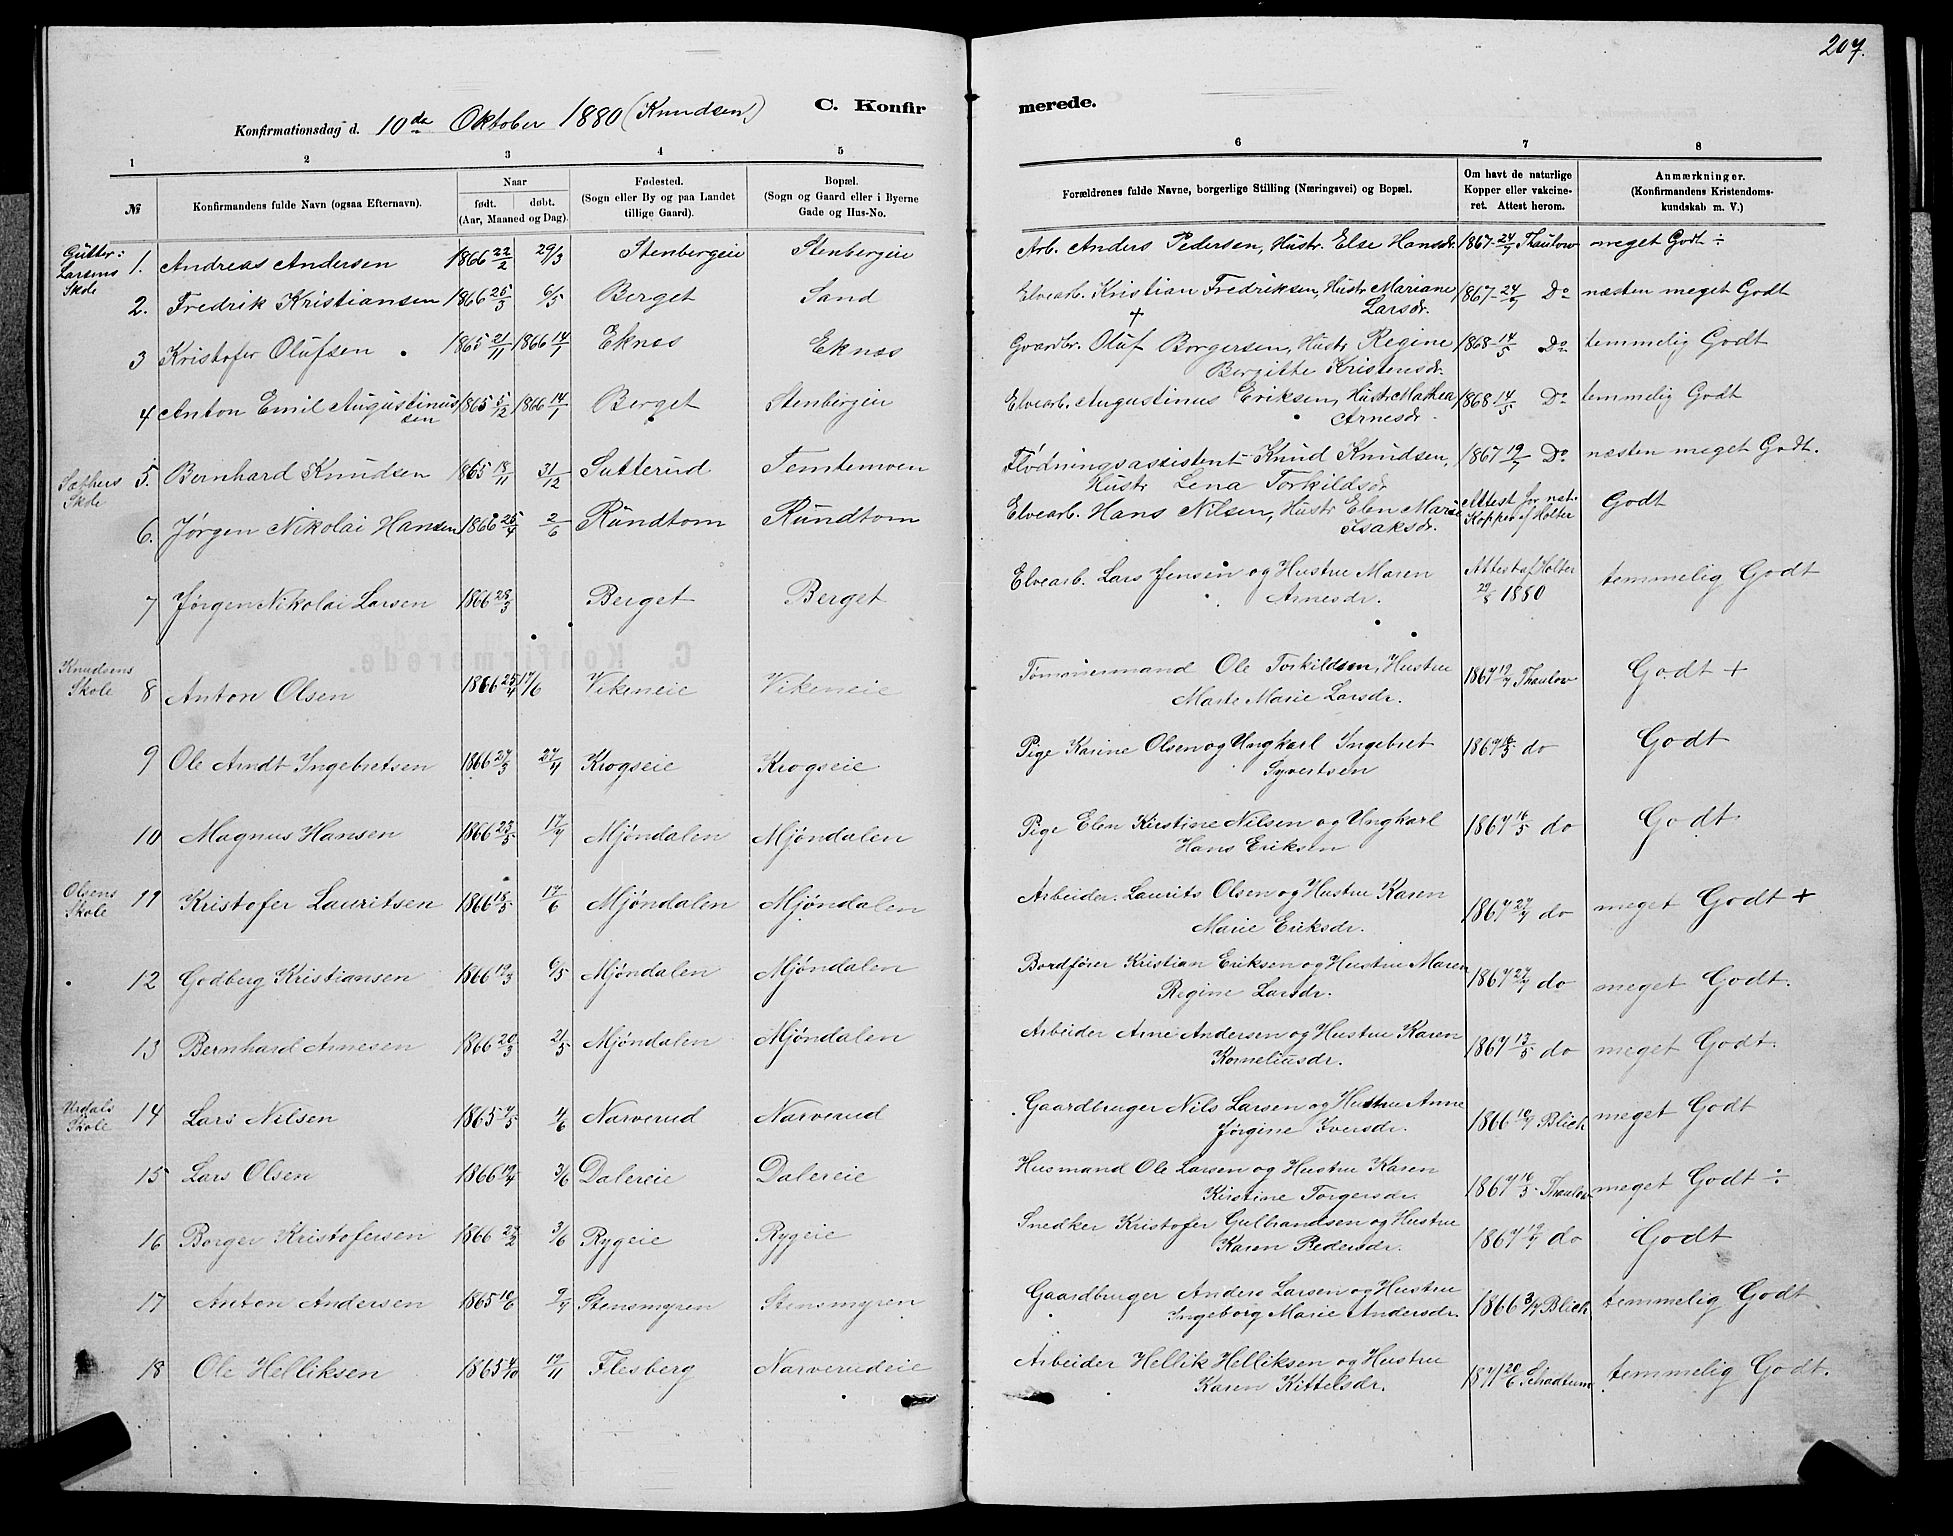 207.
C. Konfir merede.
Konfirmationsdag d. 10de Oktober 1880 (Knudsen)
1 2 3 4 5 6 7 8
№ Konfirmandens fulde Navn (ogsaa Efternavn). Naar født. døbt. (Aar, Maaned og Dag). Fødested. (Sogn eller By og paa Landet tillige Gaard). Bopæl. (Sogn og Gaard eller i Byerne Gade og Hus-No. Forældrenes fulde Navne, borgerlige Stilling (Næringsvei) og Bopæl. Om havt de naturlige Kopper eller vakcineret. Attest herom. Anmærkninger. (Konfirmandens Kristendomskundskab m. V.)
Gutter:
Larsens Skole
1. Andreas Andersen 1866 22/2 29/3 Stenbergeie Stenbergeie Arb. Anders Pedersen, Hustr. Else Hansdr. 1867 24/7 Thaulow meget Godt ÷
2. Fredrik Kristiansen 1866 25/3 6/5 Berget Sand Elvearb. Kristian Fredriksen, Hustr. Mariane 1867 24/7 Do næsten meget Godt
Larsdr.
3 Kristofer Olufsen 1865 21/11 1866 14/1 Eknes Eknes Gaardbr. † Oluf Borgersen, Hustr Regine 1868 14/5 Do temmelig Godt
Bergitte Kristensdr.
4 Anton Emil Augustinussen 1865 5/12 1866 14/1 Berget Stenbergeie Elvearb. Augustinus Eriksen, Hustr Mathea 1868 14/5 Do temmelig Godt
Arnesdr.
Sæthers Skole
5. Bernhard Knudsen 1865 18/11 31/12 Sutterud Temtemoen Flødningsassistent Knud Knudsen, 1867 19/7 Do næsten meget Godt.
Hustr Lena Torkildsdr
6. Jørgen Nikolai Hansen 1866 25/4 2/6 Rundtom Rundtom Elvearb. Hans Nilsen, Hustr Elen Marie Attest for nat. Godt
Isaksdr. Kopper af Holter
7 Jørgen Nikolai Larsen 1866 28/3 Berget Berget Elvearb. Lars Jensen og Hustru Maren Attest af Holter temmelig Godt
Arnesdr. 29/8 1880
C. Konfirmerede.
Knudsens Skole
8 Anton Olsen 1866 25/4 17/6 Vikeneie Vikeneie Tømmermand Ole Torkildsen, Hustrue 1867 19/7 Thaulow Godt +
Marte Marie Larsdr.
9 Ole Arndt Ingebretsen 1866 27/3 27/4 Krogseie Krogseie Pige Karine Olsen og Ungkarl Ingebret 1867 16/5 do Godt
Syvertsen
10 Magnus Hansen 1866 23/5 17/7 Mjøndalen Mjøndalen Pige Elen Kirstine Nilsen og Ungkarl 1867 16/5 do Godt
Hans Eriksen
Olsens Skole
11 Kristofer Lauritsen 1866 18/5 17/6 Mjøndalen Mjøndalen Arbeider. Laurits Olsen og Hustrue Karen 1867 27/7 do meget Godt +
Marie Eriksdr.
12 Godberg Kristiansen 1866 19/3 6/5 Mjøndalen Mjøndalen Bordfører Kristian Eriksen og Hustrue Maren 1867 27/7 do meget Godt.
Regine Larsdr.
13 Bernhard Arnesen 1866 20/3 2/5 Mjøndalen Mjøndalen Arbeider Arne Andersen og Hustrue Karen 1867 13/5 do meget Godt.
Korneliusdr.
Skole
14 Lars Nilsen 1865 4/5 4/6 Narverud Narverud Gaardbruger Nils Larsen og Hustrue Anne 1866 10/7 Blich meget Godt
Jørgine Iversdr.
15 Lars Olsen 1866 19/4 3/6 Dalereie Dalereie Husmand Ole Larsen og Hustrue Karen 1867 16/5 Thaulow meget Godt ÷
Kirstine Torgersdr.
16 Borger Kristofersen 1866 27/2 3/6 Rygeie Rygeie Snedker Kristofer Gulbrandsen og Hustrue 1867 19/7 do Godt
Karen Pedersdr.
17 Anton Andersen 1865 10/6 9/7 Stensmyren Stensmyren Gaardbruger Anders Larsen og Hustrue 1866 3/7 Blich temmelig Godt
Ingeborg Marie Andersdr.
18 Ole Helliksen 1865 4/10 19/11 Flesberg Narverudeie Arbeider Hellik Helliksen og Hustrue 1871 20/6 temmelig Godt.
Karen Kittelsdr.